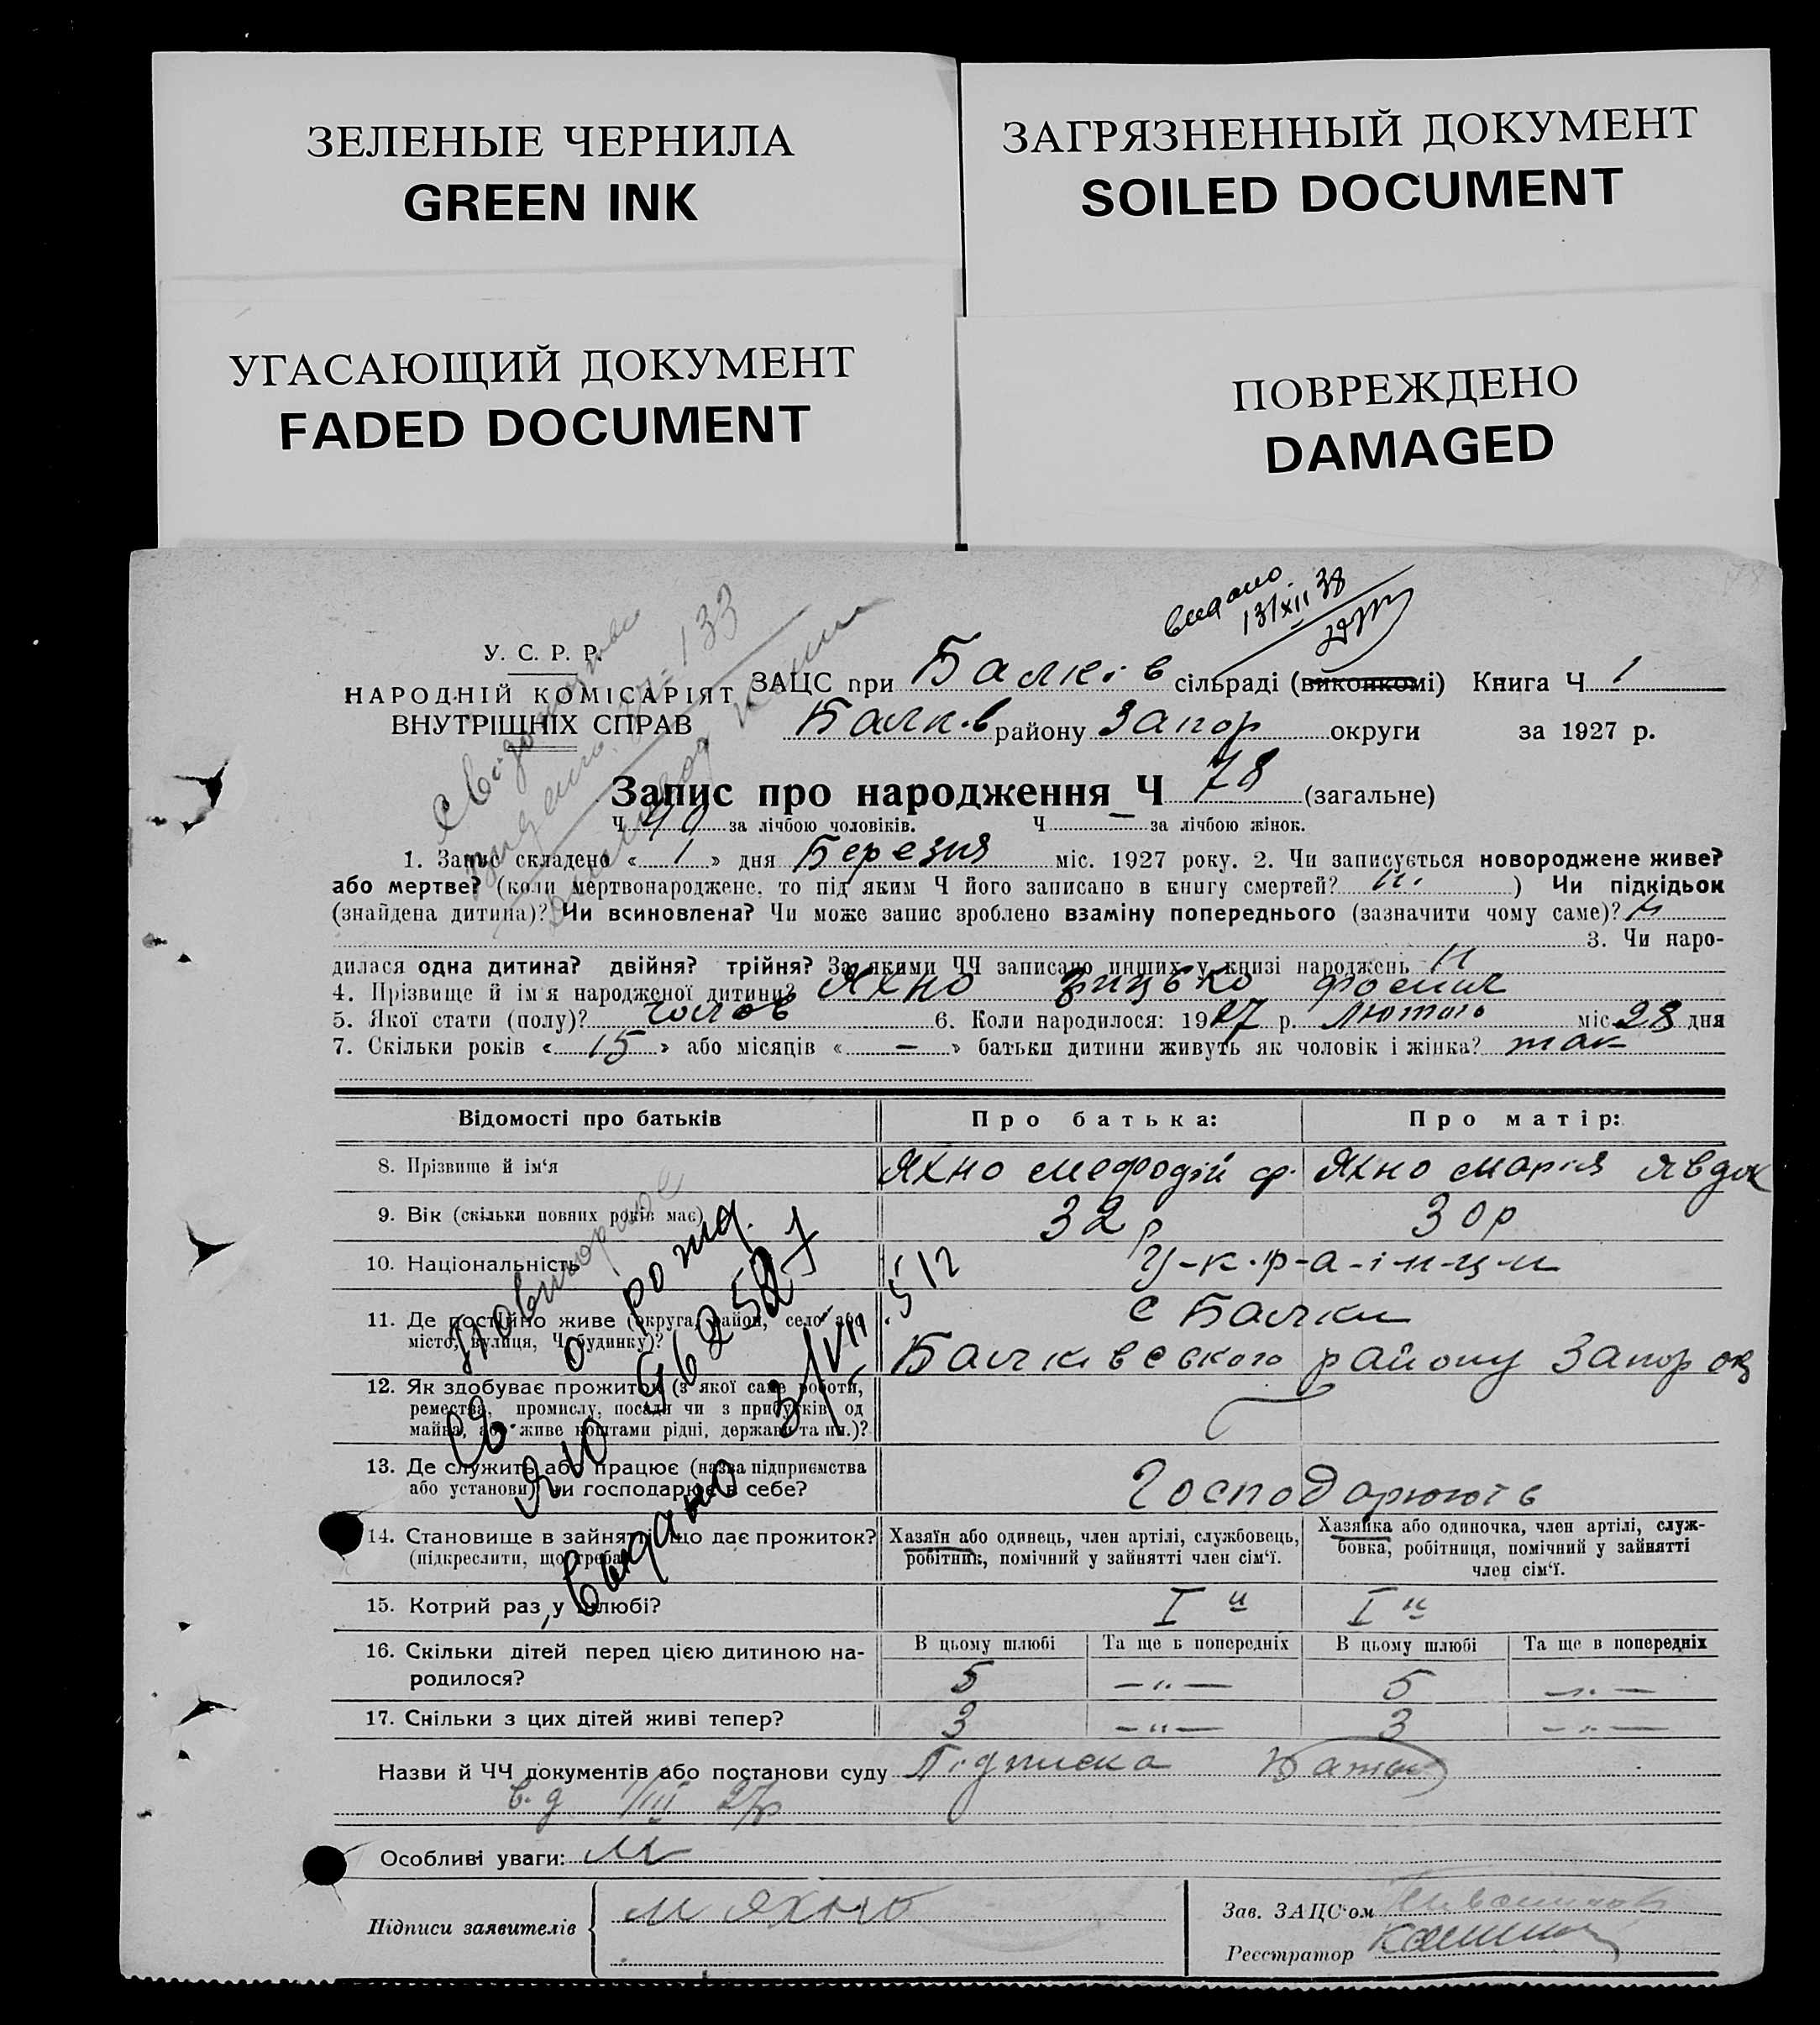 ЗЕЛЕНЫЕ ЧЕРНИЛА
GREEN INK
ЗАГРЯЗНЕННЫЙ ДОКУМЕНТ
SOILED DOCUMENT
УГАСАЮЩИЙ ДОКУМЕНТ
FADED DOCUMENT
ПОВРЕЖДЕНО
DAMAGED
видано
13/XII 38
У. С. Р. Р.
НАРОДНІЙ КОМІСАРІЯТ
ВНУТРІШНІХ СПРАВ
ЗАЦС при Балків сільраді (виконкомі) Книга Ч 1
Балків району Запор округи за 1927 р.
Запис про народження Ч 78 (загальне)
Ч 40 за лічбою чоловіків. Ч — за лічбою жінок.
1. Запис складено « 1 » дня Березня міс. 1927 року. 2. Чи записується новороджене живе?
або мертве? (коли мертвонароджене, то під яким Ч його записано в книгу смертей? н. ) Чи підкідьок
(знайдена дитина)? Чи всиновлена? Чи може запис зроблено взаміну попереднього (зазначити чому саме)? н
3. Чи наро-
дилася одна дитина? двійня? трійня? За якими ЧЧ записано инших у книзі народжень н
4. Прізвище й ім'я народженої дитини? Яхно Грицько
5. Якої стати (полу)? чолов 6. Коли народилося: 1927 р. Лютого міс 28 дня
7. Скільки років « 15 » або місяців « — » батьки дитини живуть як чоловік і жінка? так
Відомості про батьків Про батька: Про матір:
8. Прізвище й ім'я Яхно Мефодій Ф. Яхно Марія Явдок
9. Вік (скільки повних років має) 32 р 30 р
10. Національність У-к-р-а-ї-н-ц-и
11. Де постійно живе (округа, район, село або с Балки
місто, вулиця, Ч будинку)? Балківського району Запор ок
12. Як здобуває прожиток (з якої саме роботи,
ремества, промислу, посади чи з прибутків од
майна, або живе коштами рідні, держави та ин.)?
13. Де служить або працює (назва підприємства
або установи) чи господарює в себе? Господарюють
14. Становище в зайнятті, що дає прожиток? Хазяїн або одинець, член артілі, службовець, Хазяйка або одиночка, член артілі, служ-
(підкреслити, що треба) робітник, помічний у зайнятті член сім'ї. бовка, робітниця, помічний у зайнятті
член сім'ї.
15. Котрий раз у шлюбі? I й I й
16. Скільки дітей перед цією дитиною на- В цьому шлюбі Та ще в попередніх В цьому шлюбі Та ще в попередніх
родилося? 5 —"— 5 —"—
17. Скільки з цих дітей живі тепер? 3 —"— 3 —"—
Назви й ЧЧ документів або постанови суду Підписка Батьк
в. д 1/III 27р
Особливі уваги: н
Підписи заявителів М Яхно
Зав. ЗАЦС'ом
Реєстратор
Повторное
Св. о рожд.
ЯЮ 962521
видано 3/VII.51г